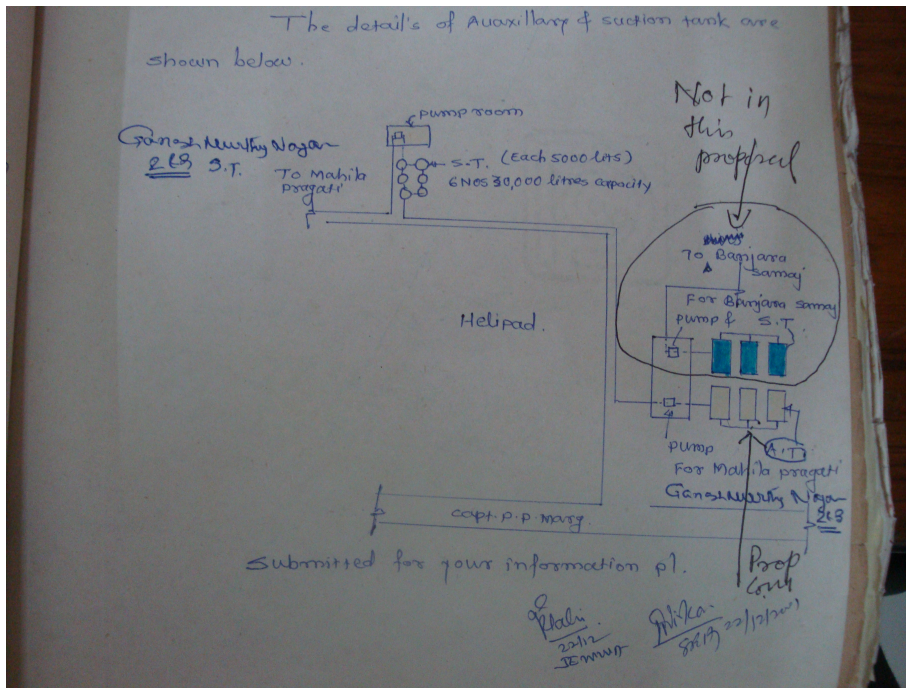 The detail's of Auaxillary & suction tank are
shown below.
Not in
this
proposal
pump room
Ganesh Murthy Nagar
2&3 S.T.
To Mahila
pragati
S.T. (Each 5000 lits)
6 Nos 30,000 litres capacity
To Banjara
samaj
For Banjara samaj
pump & S.T.
Helipad.
pump
A.T.
For Mahila pragati
Ganesh Murthy Nagar
2&3
Capt. P.P. Marg.
Submitted for your information pl.
Prop
22/12
22/12/2001